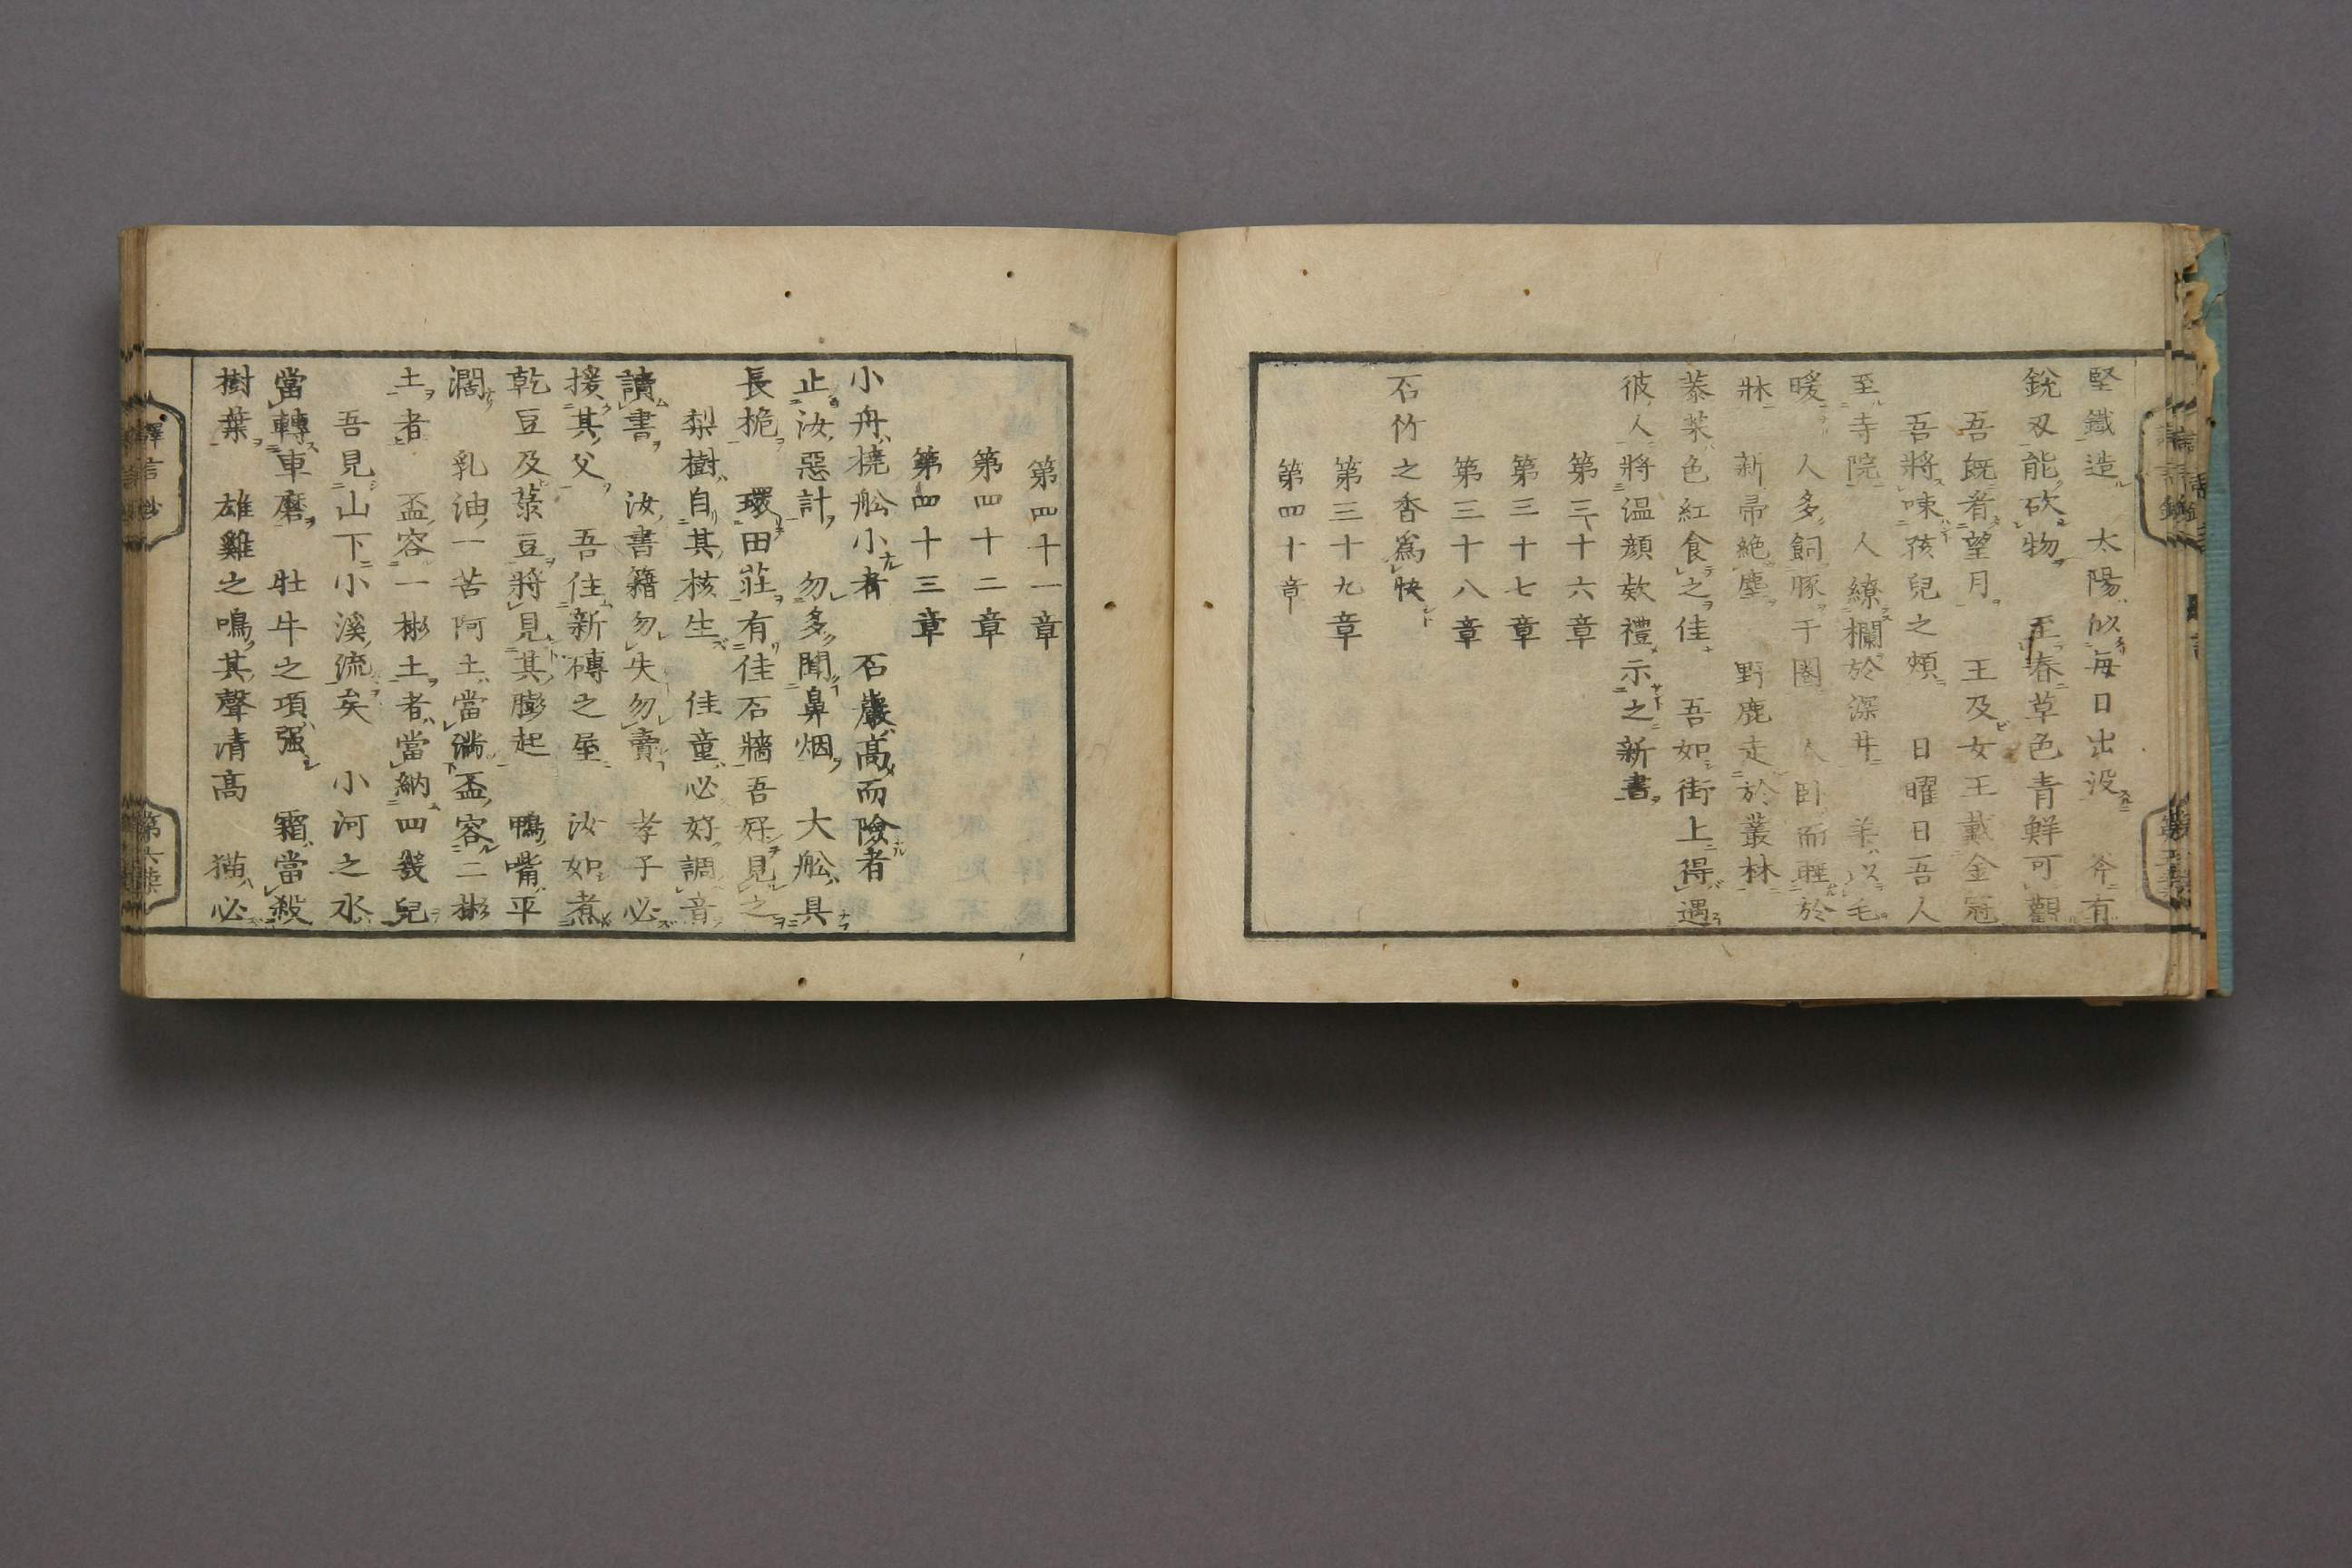 堅鐵造 太陽似每日出没 斧有
鋭刄能砍物 至春草色青鮮可觀
吾既看望月 王及女王戴金冠
吾將唻孩兒之頰 日曜日吾人
至寺院 人繚欄於深井 羊以毛
暖 人多飼豚于圏 人卧而睡於
牀 新帚絶塵 野鹿走於叢林
菾菜色紅食之佳 吾如街上得遇
彼人將温顔欸禮示之新書
第三十六章
第三十七章
第三十八章
石竹之香爲快
第三十九章
第四十章
第四十一章
第四十二章
第四十三章
小舟橈舩小者 石巖高而險者
止汝惡計 勿多聞鼻烟 大舩具
長桅 環田莊有佳石牆吾好見之
梨樹自其核生 佳童必好調音
讀書 汝書籍勿失勿賣 孝子必
援其父 吾住新磚之屋 汝如煮
乾豆及菉豆將見其膨起 鴨嘴平
濶 乳油一苦阿土當滿盃容二彬
土者 盃容一彬土者當納四幾兒
吾見山下小溪流矣 小河之水
當轉車磨 牡牛之項强 霜當殺
樹葉 雄雞之鳴其聲清高 猫必
第六葉